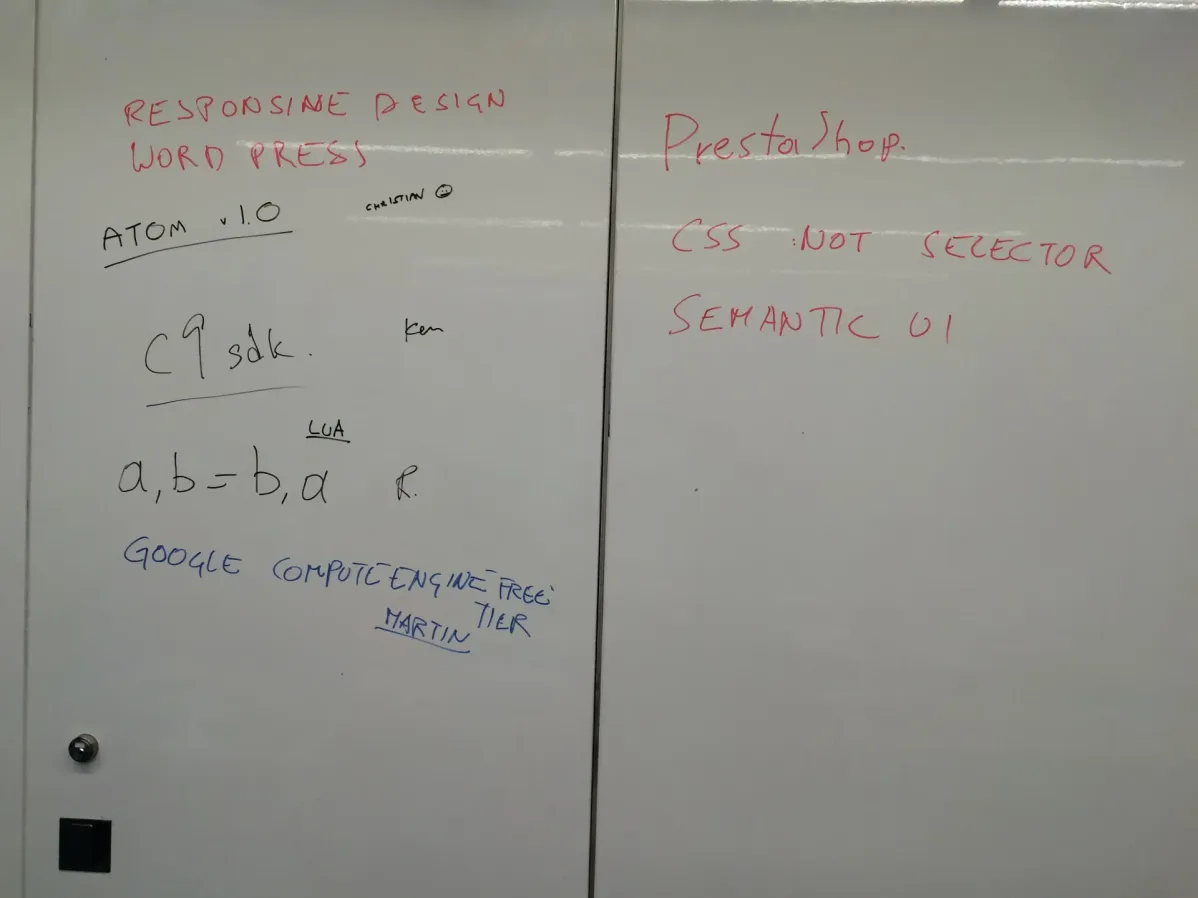 RESPONSIVE DESIGN
WORD PRESS
ATOM v1.0 CHRISTIAN
c9 sdk. Ken
LUA
a,b=b,a R.
GOOGLE COMPUTE ENGINE FREE
TIER
MARTIN
PrestaShop.
CSS :NOT SELECTOR
SEMANTIC UI